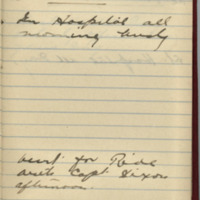 In Hospital all
morning busy
went for Ride
with Capt. Dixon
afternoon.